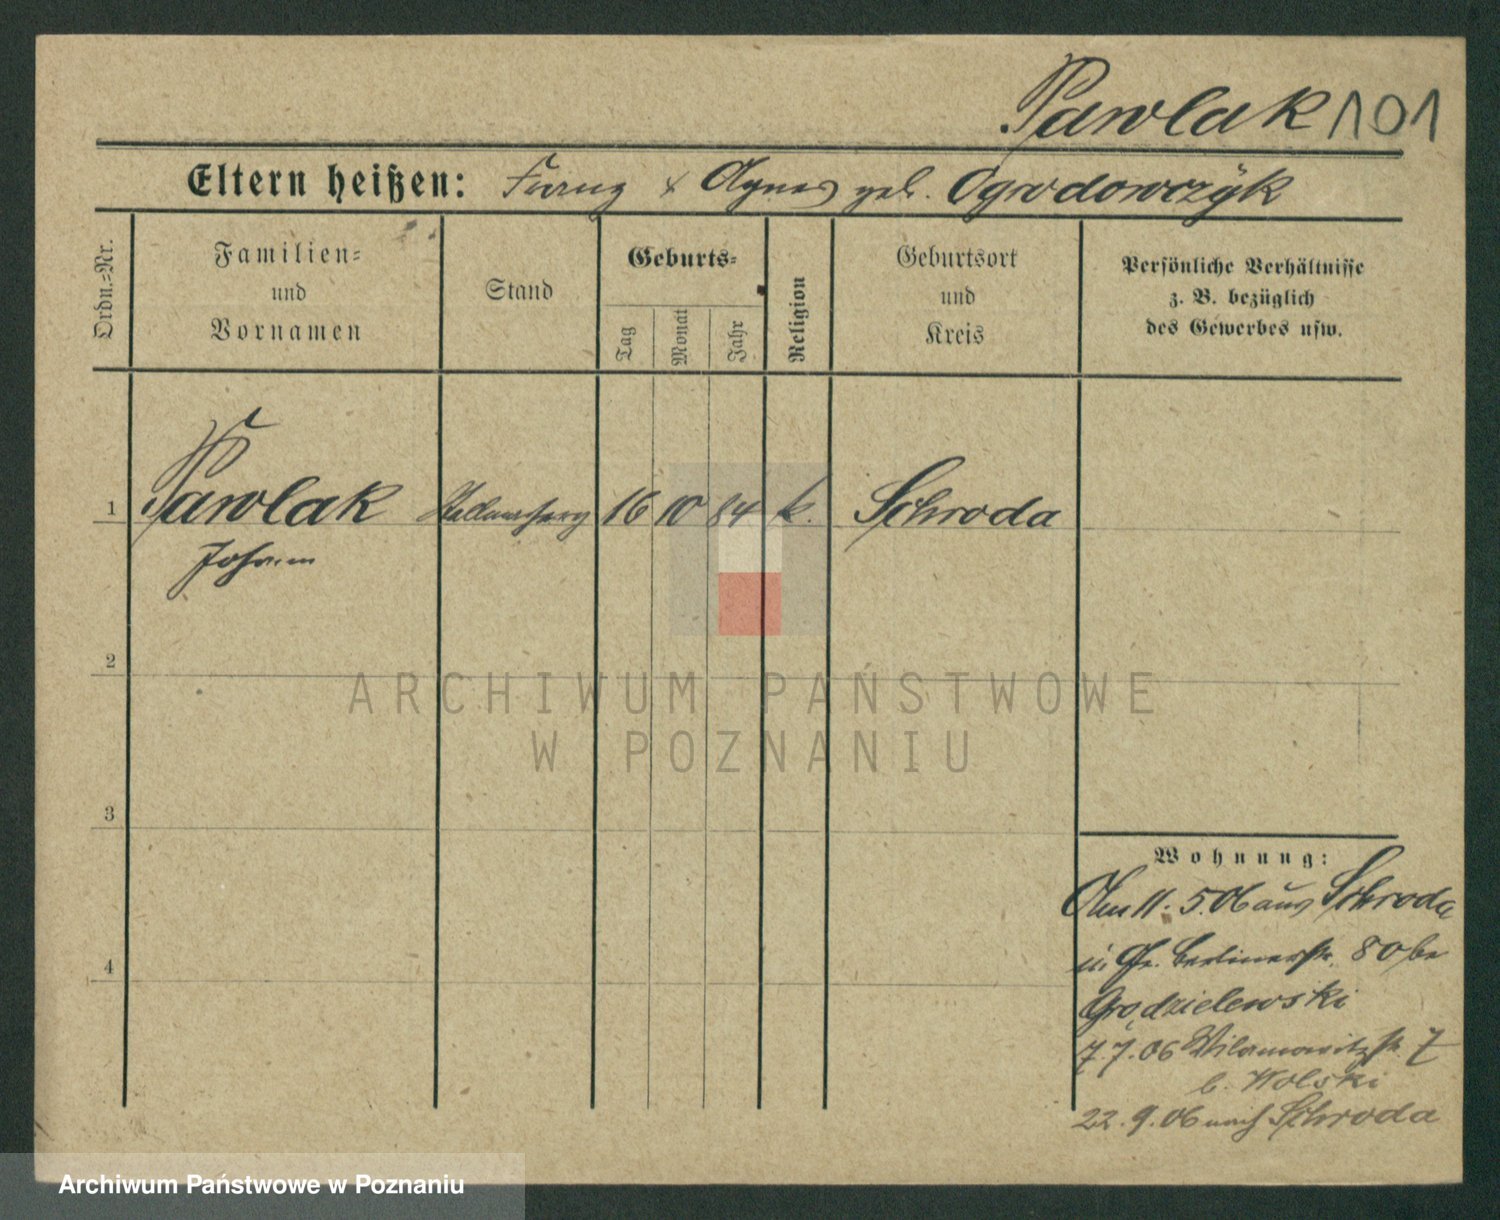 Pawlak 101
Eltern heißen: Franz & Agnes geb. Ogrodowczÿk
Ordn.-Nr.
Familien-
und
Vornamen
Stand
Geburts-
Tag
Monat
Jahr
Religion
Geburtsort
und
Kreis
Persönliche Verhältnisse
z. B. bezüglich
des Gewerbes usw.
1 Pawlak 16 10 84 k. Schroda
Johann
2
3
4
Wohnung:
Am 11. 5. 06 aus Schroda
Berlinerstr. 80 be
Grądzielewski
7. 7. 06 Wilamowitzstr. 7
b. Wolski
22. 9. 06 nach Schroda
ARCHIWUM PAŃSTWOWE
W POZNANIU
Archiwum Państwowe w Poznaniu